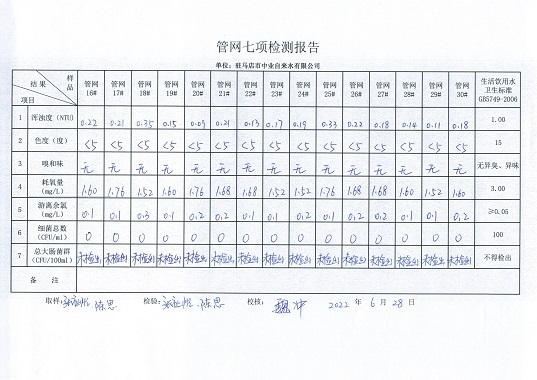 管网七项检测报告
单位：驻马店市中业自来水有限公司
结果 样品 项目 管网16# 管网17# 管网18# 管网19# 管网20# 管网21# 管网22# 管网23# 管网24# 管网25# 管网26# 管网27# 管网28# 管网29# 管网30# 生活饮用水卫生标准GB5749-2006
1 浑浊度（NTU） 0.22 0.21 0.35 0.15 0.09 0.21 0.13 0.17 0.19 0.33 0.22 0.18 0.14 0.11 0.18 1.00
2 色度（度） <5 <5 <5 <5 <5 <5 <5 <5 <5 <5 <5 <5 <5 <5 <5 15
3 嗅和味 无 无 无 无 无 无 无 无 无 无 无 无 无 无 无 无异臭、异味
4 耗氧量（mg/L） 1.60 1.76 1.52 1.60 1.76 1.68 1.68 1.52 1.52 1.76 1.68 1.68 1.60 1.52 1.60 3.00
5 游离余氯（mg/L） 0.1 0.1 0.3 0.1 0.2 0.2 0.1 0.1 0.2 0.2 0.1 0.2 0.1 0.1 0.2 ≥0.05
6 细菌总数（CFU/ml） 0 0 0 0 0 0 0 0 0 0 0 0 0 0 0 100
7 总大肠菌群（CFU/100ml） 未检出 未检出 未检出 未检出 未检出 未检出 未检出 未检出 未检出 未检出 未检出 未检出 未检出 未检出 未检出 不得检出
备 注
取样： 陈思 检验： 陈思 校核： 魏冲 2022 年 6 月 28 日